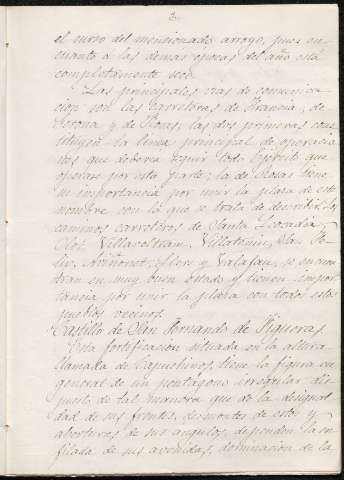 3
el curso del mencionado arroyo, pues en
cuanto á las demas epocas del año está
completamente seco.
Las principales vias de comunica-
cion son las carreteras de Francia, de
Gerona y de Rosas, las dos primeras cons-
tituyen la linea principal de operacio
nes que deberia seguir todo Ejército que
operase por esta parte; la de Rosas tiene
su importancia por unir la plaza de este
nombre con la que se trata de describir, los
caminos carreteros de Santa Leocadia,
Olot, Villabeltran, Villatenim, San Pe-
lio, Aviñonet, Llers y Valafau, se encuen
tran en muy buen estado y tienen impor-
tancia por unir la plaza con todos estos
pueblos vecinos.
Castillo de San Fernando de Figueras
Esta fortificacion situada en la altura
llamada de Capuchinos, tiene la figura en
general de un pentágono irregular dis-
puesto de tal manera que de la desigual
dad de sus frentes, desmontes de estos y
aberturas de sus angulos, dependen la en
filada de sus avenidas, dominacion de la